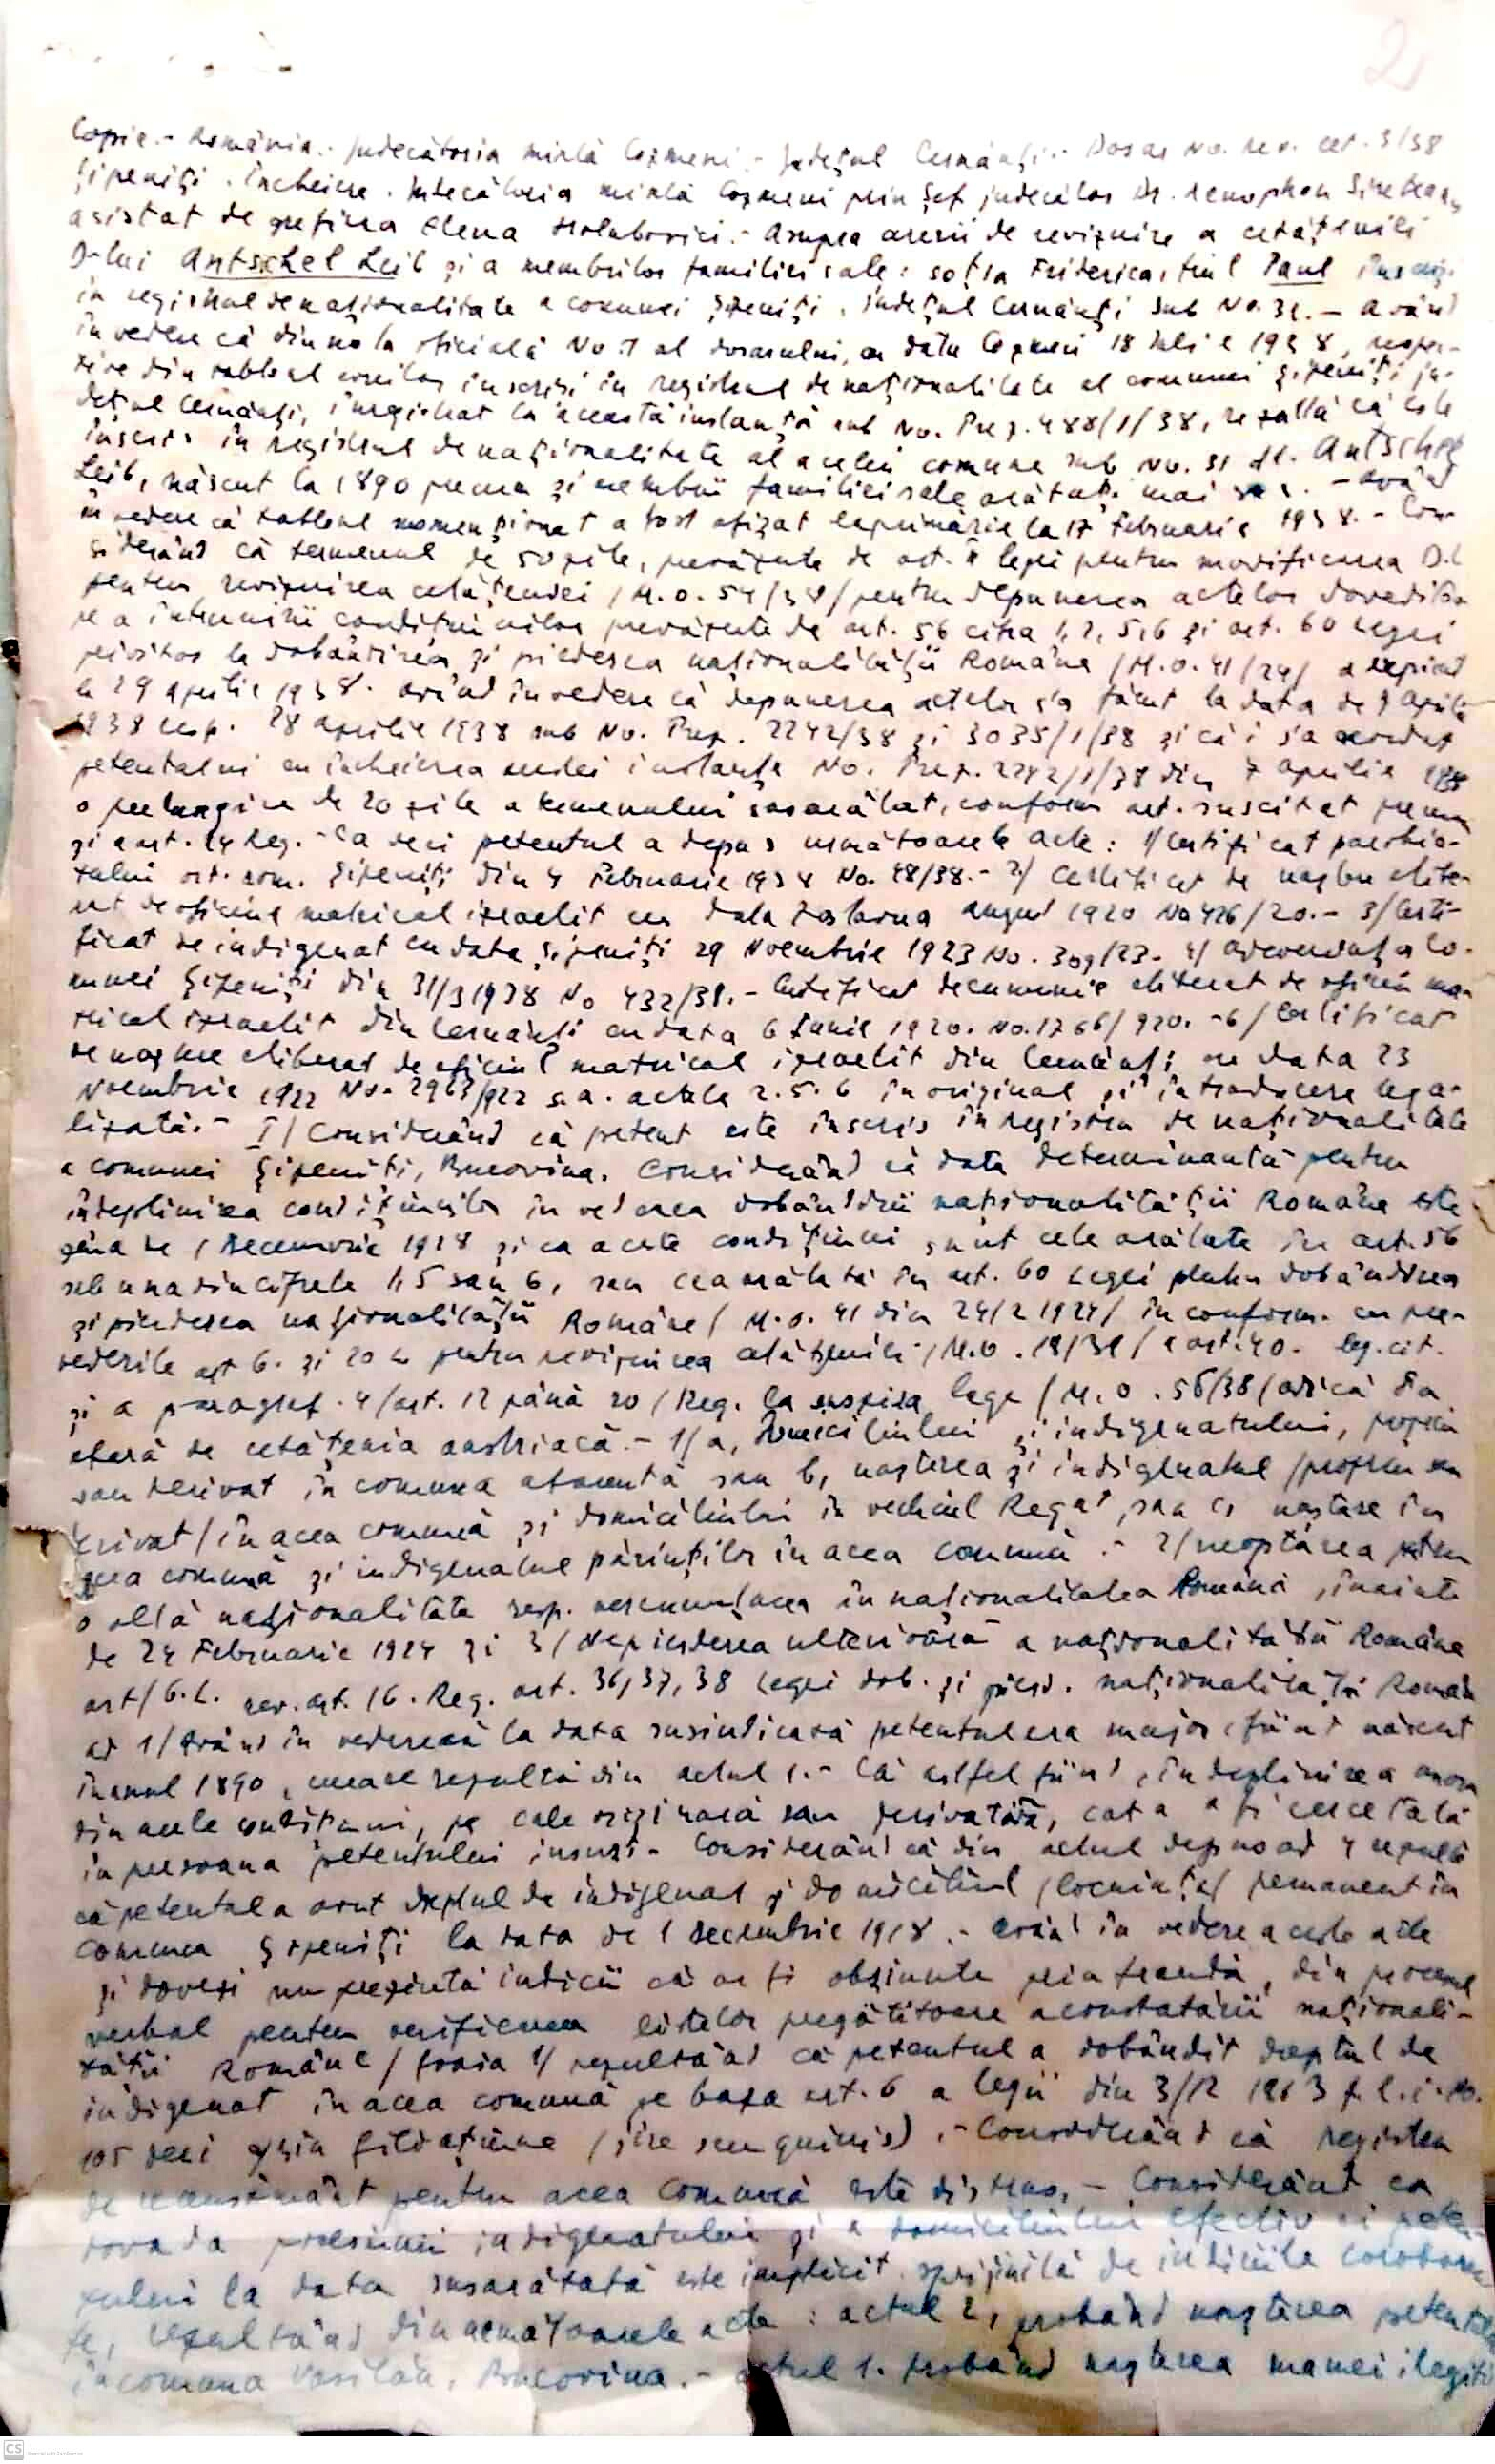 2
Copie.- România.- Judecătoria mixtă Cozmeni.- Județul Cernăuți.- Dosar No. rev. cet. 3/38
Șipeniți. Încheiere. Judecătoria mixtă Cozmeni prin șef judecător Dr. Xenophon
asistat de grefiera Elena Holubovici.- Asupra cererii de revizuire a cetățeniei
D-lui Antschel Leib și a membrilor familiei sale: soția Friderica, fiul Paul înscriși
în registrul de naționalitate a comunei Șipeniți, județul Cernăuți sub No. 31.- Având
în vedere că din nota oficială No. 1 al dosarului, cu data Cozmeni 18 Iulie 1938, respec-
tive din tabloul evreilor înscriși în registrul de naționalitate al comunei Șipeniți ju-
dețul Cernăuți, înregistrat la această instanță sub No. Prez. 488/1/38, rezultă că este
înscris în registrul de naționalitate al acelei comune sub No. 31 dl. Antschel
Leib, născut la 1890 precum și membrii familiei sale arătați mai sus.- Având
în vedere că tabloul momenționat a fost afișat la primărie la 17 Februarie 1938.- Con-
siderând că termenul de 50 zile, prevăzute de art. legei pentru modificarea D.L
pentru revizuirea cetățeniei /M.O. 54/38/ pentru depunerea actelor doveditoa-
re a întrunirii condițiunilor prevăzute de art. 56 cifra 1, 2, 5, 6 și art. 60 Legei
privitor la dobândirea și pierderea naționalității Române /M.O. 41/24/ a expirat
la 29 Aprilie 1938. Având în vedere că depunerea actelor s'a făcut la data de 9 Aprilie
1938 resp. 28 Aprilie 1938 sub No. Prez. 2242/38 și 3035/1/38 și că i s'a acordat
petentului cu încheierea acestei instanțe No. Prez. 2242/1/38 din 7 Aprilie 1938
o prelungire de 20 zile a termenului susarătat, conform art. suscitat precum
și art. 14 Reg.- Ca deci petentul a depus următoarele acte: 1/ Certificat parohia-
tului ort. rom. Șipeniți din 4 Februarie 1938 No. 48/38.- 2/ Certificat de naștere elibe-
rat de oficiul matrical izraelit cu data Zastavna August 1920 No 426/20.- 3/ Certi-
ficat de indigenat cu data Șipeniți 29 Noembrie 1923 No. 309/23.- 4/ Adeverința Co-
munei Șipeniți din 31/3 1938 No 432/38.- Certificat de cununie eliberat de oficiul ma-
trical izraelit din Cernăuți cu data 6 Iunie 1920. No. 1266/920.- 6/ Certificat
de naștere eliberat de oficiul matrical izraelit din Cernăuți cu data 23
Noembrie 1922 No. 2963/922 s.a. actele 2. 5. 6 în original și în traducere lega-
lizată.- I/ Considerând că petent este înscris în registru de naționalitate
a comunei Șipeniți, Bucovina. Considerând că data determinantă pentru
îndeplinirea condițiunilor în vederea dobândirii naționalității Române este
ziua de 1 Decemvrie 1918 și ca aceste condițiuni sunt cele arătate în art. 56
sub una din cifrele 1, 5 sau 6, sau cea arătată în art. 60 Legei pentru dobândirea
și pierderea naționalității Române / M.O. 41 din 24/2 1924/ în conform. cu pre-
vederile art 6. și 20 L pentru revizuirea cetățeniei /M.O. 18/38/ art. 40. leg. cit.
și a paragraf. 4/art. 12 până 20/ Reg. la suszisa lege /M.O. 56/38/ adică în a
afară de cetățenia austriacă.- 1/a, Domiciliului și indigenatului, propriu
sau derivat în comuna atacată sau b, nașterea și indigenatul /propriu sau
derivat/ în acea comună și domiciliului în vechiul Regat, sau c, naștere în
acea comună și indigenatul părinților în acea comună.- 2/ neoptarea pentru
o altă naționalitate resp. nerenunțarea în naționalitatea Română, înainte
de 24 Februarie 1924 și 3/ Nepierderea ulterioară a naționalității Române
art/6. L. rev. art. 16. Reg. art. 36, 37, 38 Legei dob. și pierd. naționalității Române
ad 1/ Având în vedere că la data susindicată petentul era major, fiind născut
în anul 1890, ceeace rezultă din actul 1.- Că astfel fiind, îndeplinirea
din acele condițiuni, pe cale originară sau derivativă, cată a fi cercetată
în persoana petentului însuși.- Considerând că din actul depus ad 4 rezultă
că petentul a avut dreptul de indigenat și domiciliul /locuința/ permanent în
comuna Șipeniți la data de 1 Decembrie 1918.- Având în vedere aceste acte
și dovezi nu prezintă indicii că ar fi obținute prin fraudă, din procesul
verbal pentru verificarea listelor pregătitoare a constatării naționali-
tății Române /foaia 1/ rezultând că petentul a dobândit dreptul de
indigenat în acea comună pe baza art. 6 a legii din 3/12 1863 f. l. i. No.
105 deci prin filiațiune (jure sanguinis).- Considerând că registru
de recensământ pentru acea comună este distrus.- Considerând că
dovada posesiunii indigenatului și a domiciliului efectiv al peten-
tului la data susarătată este implicit sprijinită de indiciile corobora-
te, rezultând din următoarele acte: actul 2, probând nașterea petentului
în comuna Vasilău, Bucovina.- actul 1. probând nașterea mamei ilegiti
CS